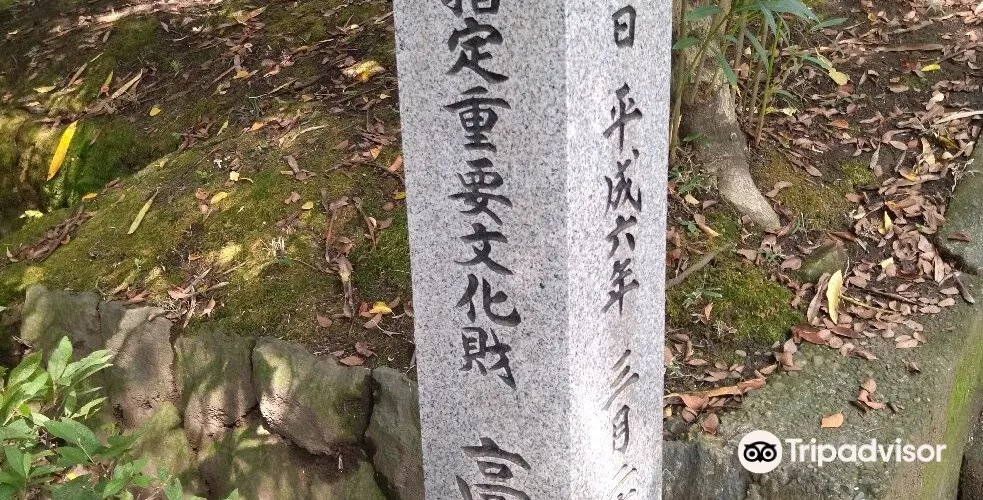 指定重要文化財 高
日 平成六年 三月
Tripadvisor